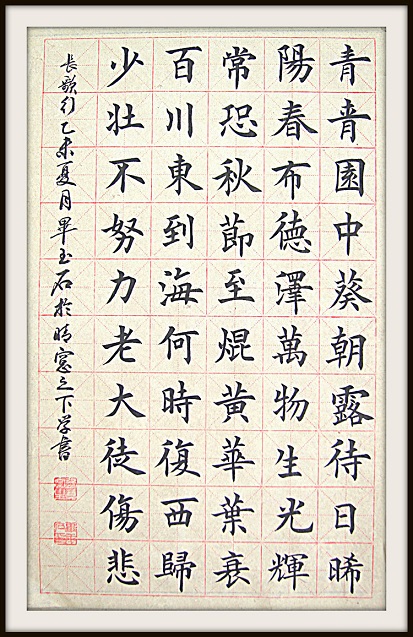 青青園中葵朝露待日晞
陽春布德澤萬物生光輝
常恐秋節至焜黃華葉衰
百川東到海何時復西歸
少壯不努力老大徒傷悲
長歌行乙未夏月畢玉石於晴窓之下学書